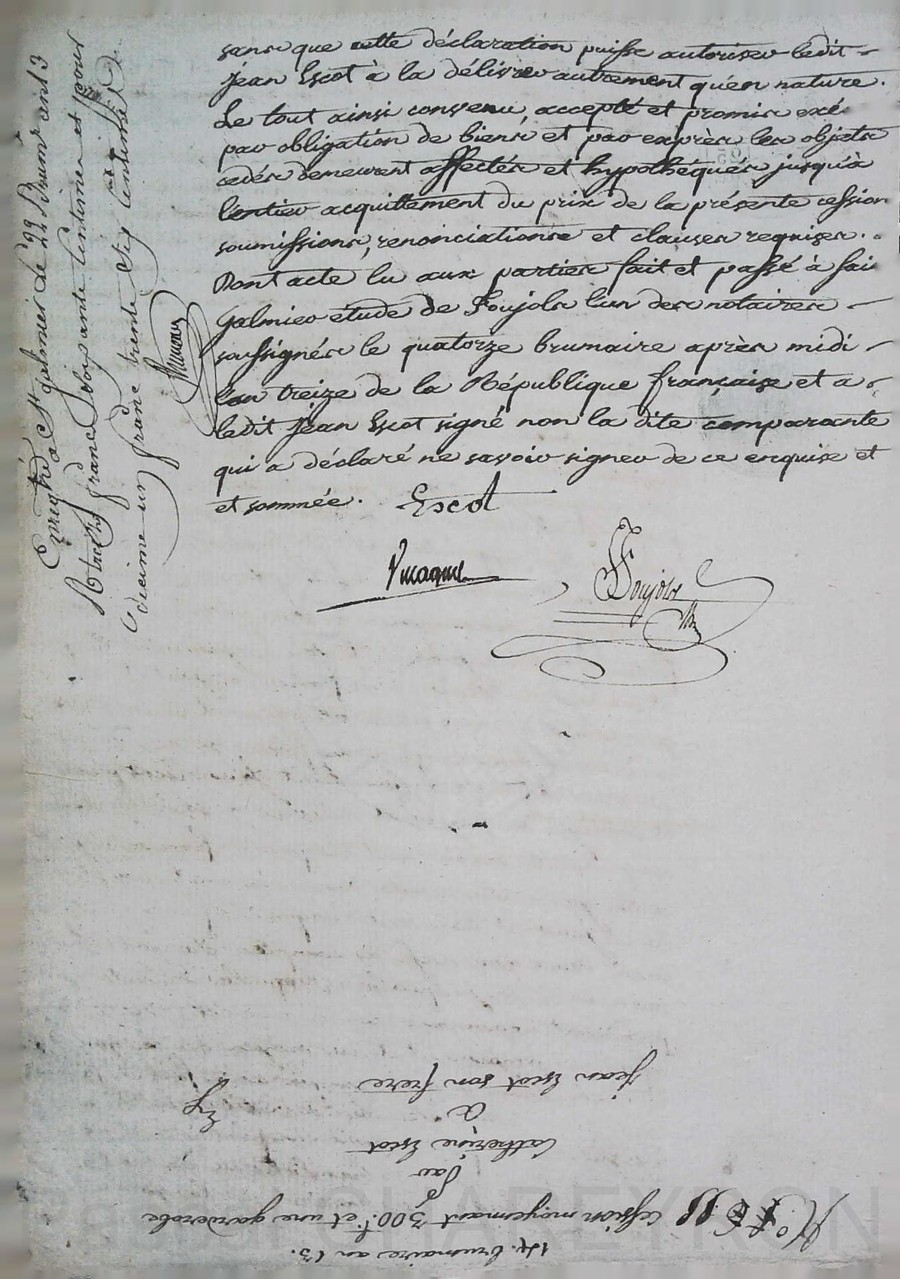 sans que cette déclaration puisse autoriser ledit
jean Escot à la délivrer autrement qu'en nature.
Le tout ainsi convenu, accepté et promis exé
par obligation de biens et par exprès les objets
cédés demeurant affectés et hypothéqués jusqu'à
lentier acquittement du prix de la présente cession
soumissions, renonciations et clauses requises.
Dont acte lu aux parties fait et passé à sai
galmier etude de Soujols lun des notaires
soussignés le quatorze brumaire après midi
lan treize de la République française et a
ledit jean Escot signé non la dite comparante
qui a déclaré ne savoir signer de ce enquise et
et sommée. Escot
Soujols
Enregistré à St galmier le 22 Brumre an 13
francs soixante centimes et pour
decime un franc trente six centimes
14. brumaire an 13.
Cession moyennant 300 f et une garderobe
par
Catherine Escot
a
jean Escot son frere